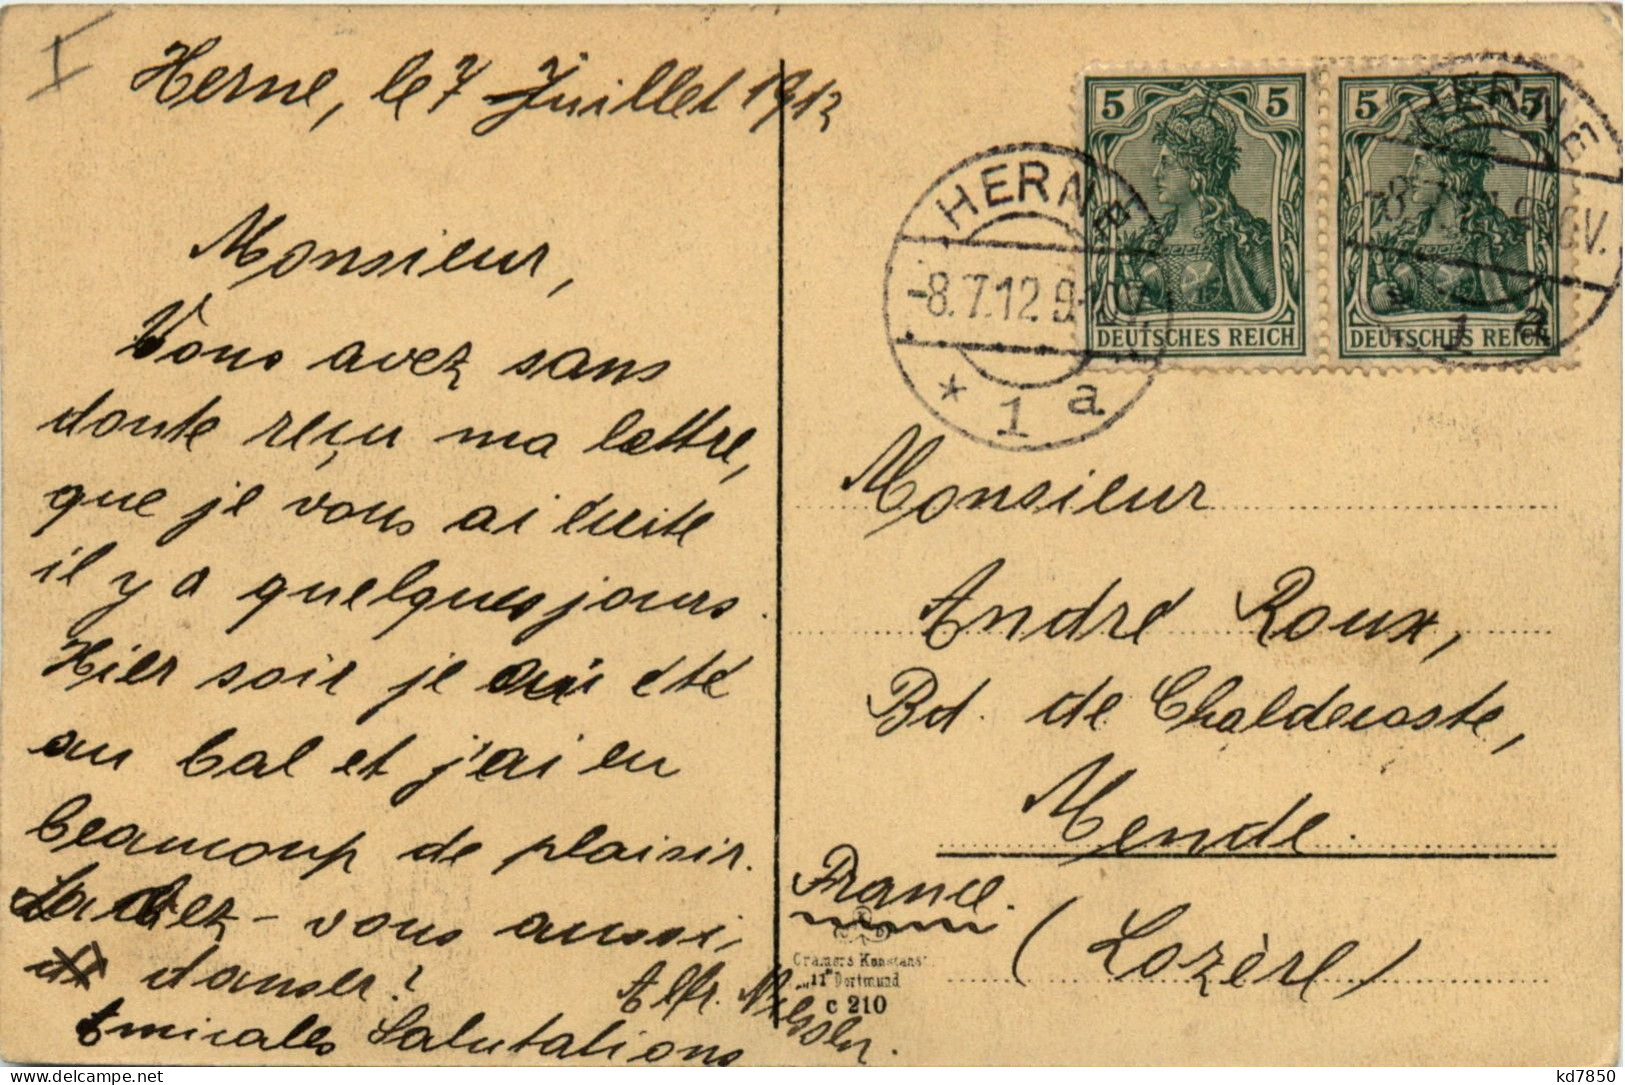 I
Herne, le 7 Juillet 1912
Monsieur,
Vous avez sans
doute reçu ma lettre,
que je vous ai écrite
il y a quelques jours.
Hier soir je ai été
au bal et j'ai eu
beaucoup de plaisir.
Savez-vous aussi
danser?
Amicales Salutations
Alfr.
5 5
DEUTSCHES REICH
5 5
DEUTSCHES REICH
HERNE
-8.7.12.9-10V.
* 1 a
HERNE
1 a
Monsieur
André Roux,
Bd. de Chaldecoste,
Mende
France.
(Lozère)
Cramers Kunstanst.
Dortmund
c 210
delcampe.net
kd7850